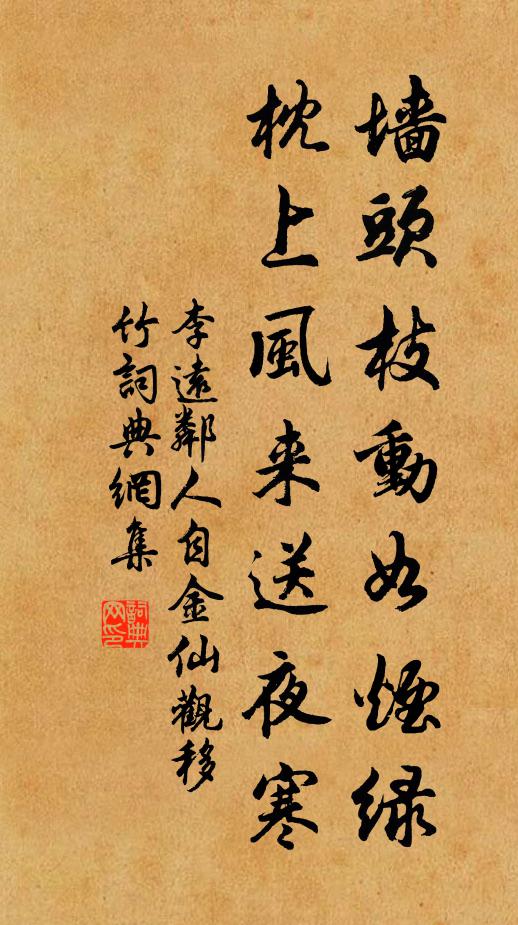 墙頭枝動如煙绿
枕上風来送夜寒
李遠鄰人自金仙觀移
竹詞典網集
詞典网印